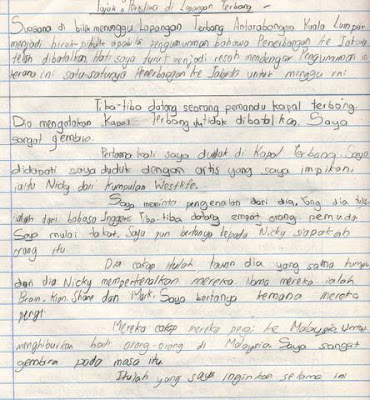 Tajuk : Peristiwa di Lapangan Terbang -
Suasana di bilik menunggu Lapangan Terbang Antarabangsa Kuala Lumpur
menjadi hiruk-pikuk apabila pengumuman bahawa Penerbangan ke Jakarta
telah dibatalkan. Hati saya turut menjadi resah mendengar Pengumuman ini
kerana ini satu-satunya Penerbangan ke Jakarta untuk minggu ini.
Tiba-tiba datang seorang pemandu kapal terbang.
Dia mengatakan Kapal Terbang itu tidak dibatalkan. Saya
sangat gembira.
Pertama kali saya duduk di Kapal Terbang. Saya
didapati saya duduk dengan artis yang saya impikan,
iaitu Nicky dari Kumpulan Westlife.
Saya meminta pengenalan dari dia, Yang dia tulis
ialah dari bahasa Inggeris. Tiba-tiba datang empat orang pemuda
Saya mulai takut. Saya pun bertanya kepada Nicky siapakah
orang itu.
Dia cakap itulah kawan dia yang sama kumpulan
dan dia Nicky memperkenalkan mereka. Nama mereka ialah
Brain, Kian, Shane dan Mark. Saya bertanya kemana mereka
pergi
Mereka cakap mereka pergi ke Malaysia untuk
menghiburkan hati orang-orang di Malaysia. Saya sangat
gembira pada masa itu.
Itulah yang saya inginkan selama ini